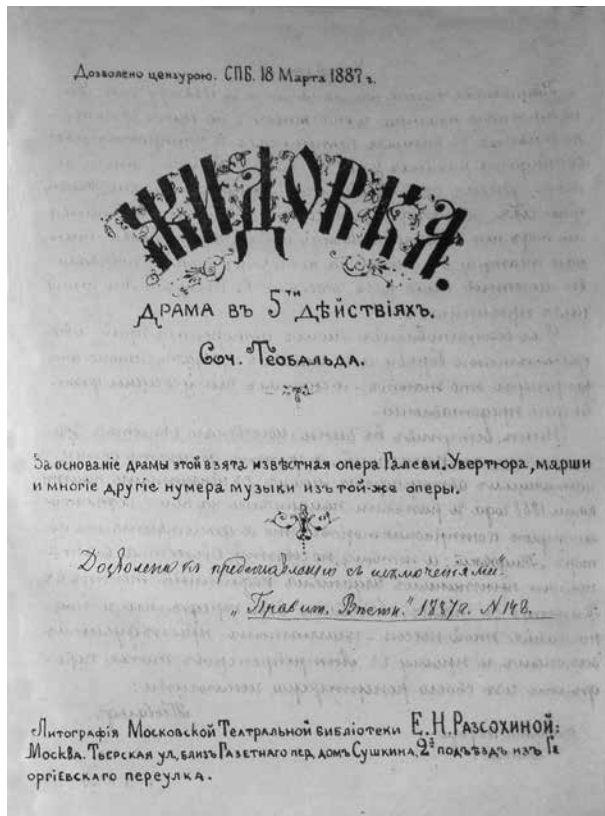 Дозволено цензурою. СПБ. 18 Марта 1887 г.
ЖИДОВКА.
ДРАМА ВЪ 5ТИ ДѢЙСТВІЯХЪ.
Соч. Теобальда.
За основаніе драмы этой взята извѣстная опера Галеви. Увертюра, марши
и многіе другіе нумера музыки изъ той-же оперы.
Дозволена къ представленію съ исключеніями.
„Правит. Вѣстн." 1887 г. № 148.
Литографія Московской Театральной библіотеки Е. Н. Разсохиной:
Москва. Тверская ул, близъ Газетнаго пер, домъ Сушкина, 2й подъѣздъ изъ Ге
оргіевскаго переулка.